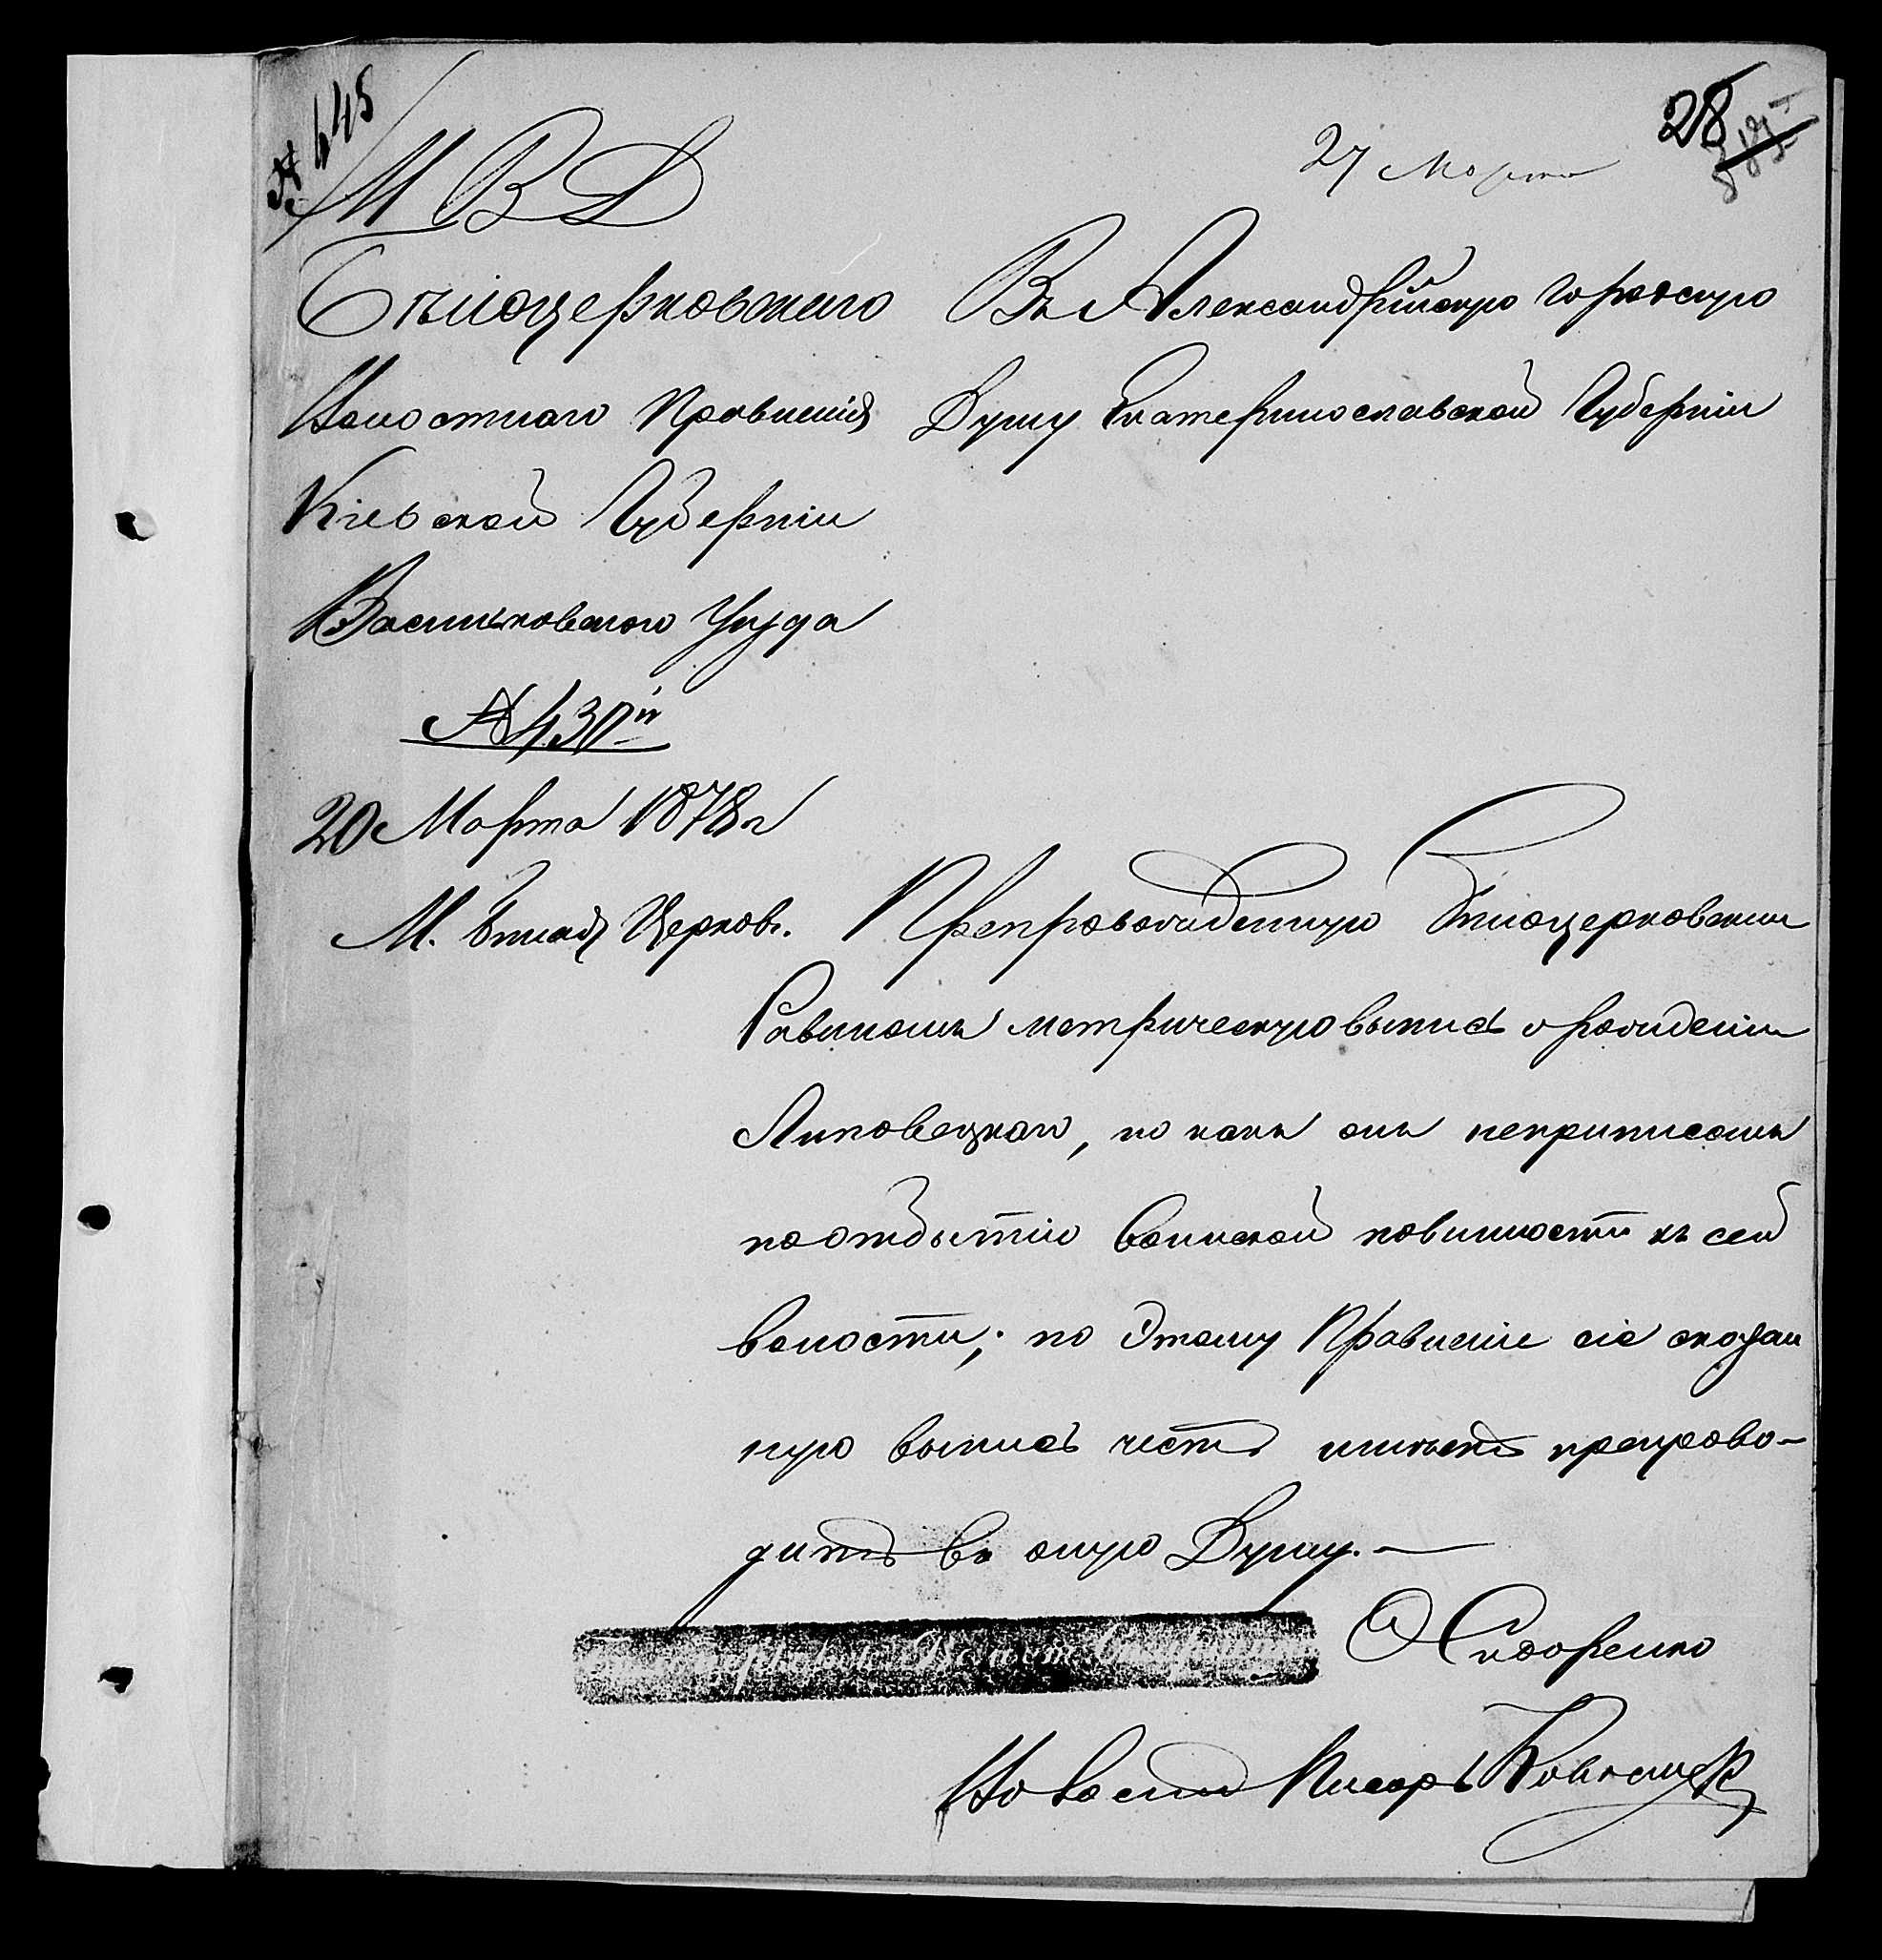 № 645
28
27 Марта
МВД
Бѣлоцерковскаго
Волостнаго Правленія
Кіевской Губерніи
Васильковскаго Уѣзда
№ 430й
20 Марта 1878 г
М. Бѣлая Церковь.
Въ Александрійскую Городскую
Думу Екатеринославской Губерніи
Препровожденную Бѣлоцерковскимъ
Равиномъ метрическую выпись о рожденіи
Липовецкаго, но какъ онъ неприписанъ
поотбытію воинской повинности къ сей
волости; по этому Правленіе сіе сказан
ную выпись честь имѣетъ препрово-
дить въ оную Думу. —
Сидоренко
Писарь